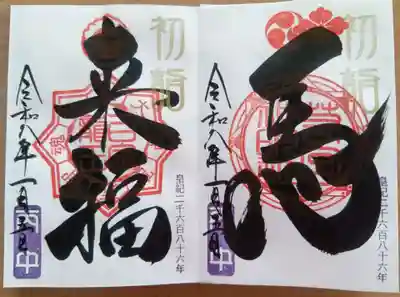 初詣
来福
令和八年一月五日
皇記二千六百八十六年
初詣
馬
令和八年一月五日
皇記二千六百八十六年